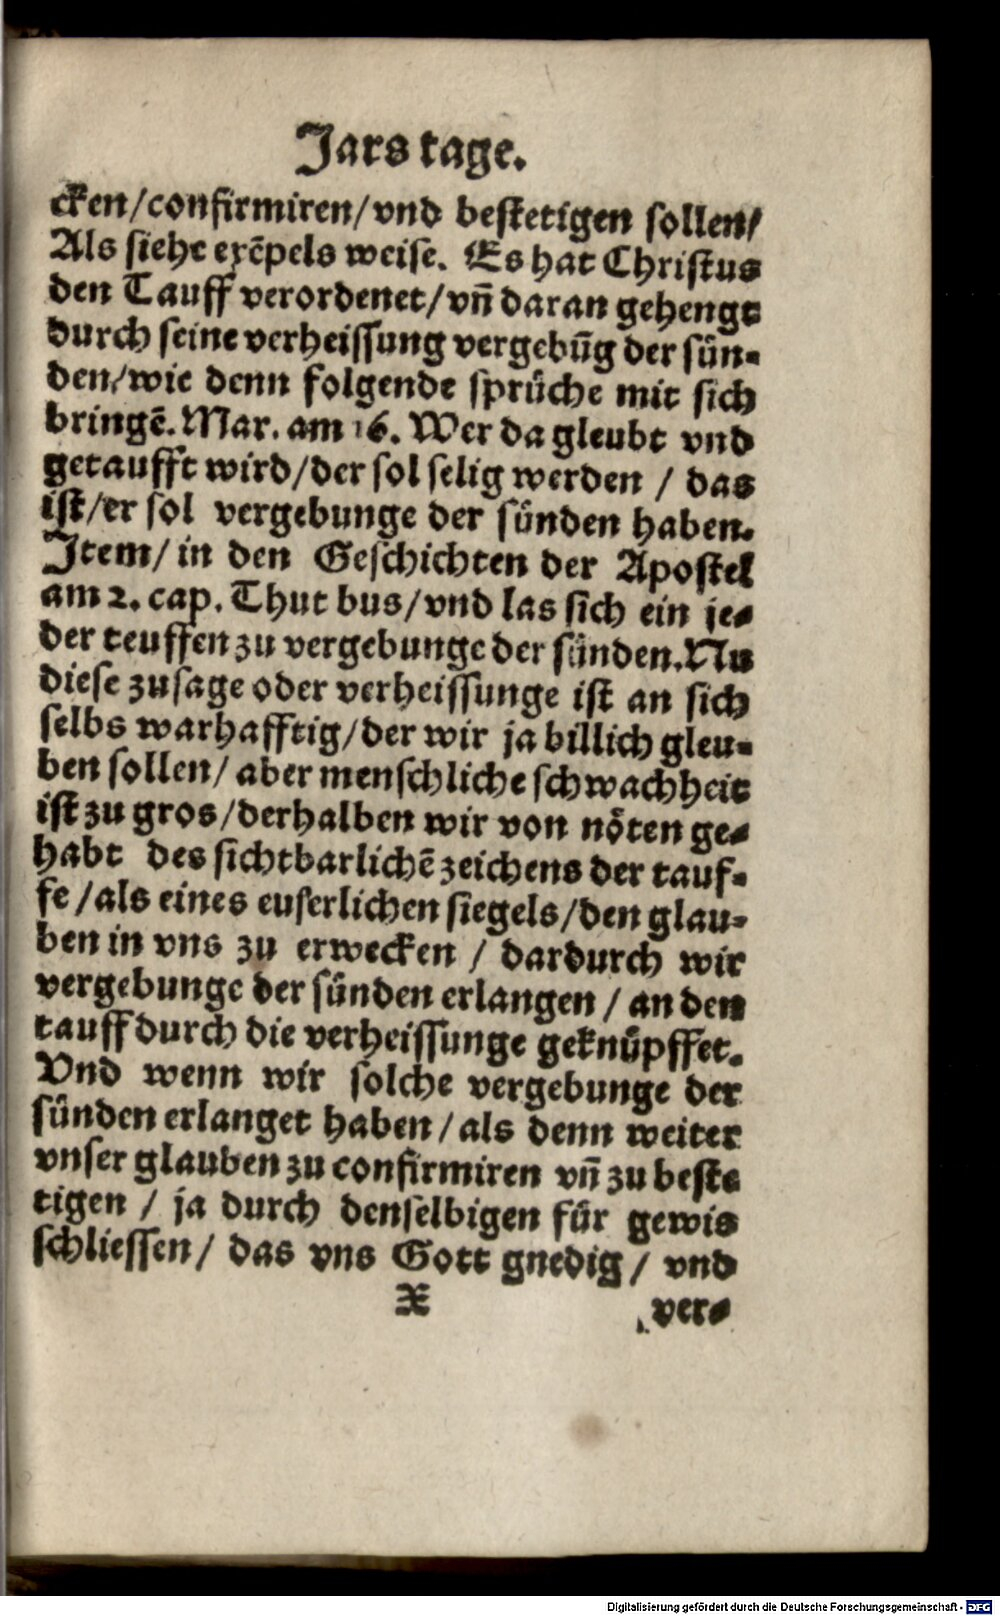 Jars tage.
cken/confirmiren/vnd bestetigen sollen/
Als siehe exēpels weise. Es hat Christus
den Tauff verordenet/vn̄ daran gehengt
durch seine verheissung vergebūg der sün-
den/wie denn folgende sprüche mit sich
bringē. Mar. am 16. Wer da gleubt vnd
getaufft wird/der sol selig werden / das
ist/er sol vergebunge der sünden haben.
Item/ in den Geschichten der Apostel
am 2. cap. Thut bus/vnd las sich ein je-
der teuffen zu vergebunge der sünden. Nu
diese zusage oder verheissunge ist an sich
selbs warhafftig/der wir ja billich gleu-
ben sollen/ aber menschliche schwachheit
ist zu gros/derhalben wir von nöten ge-
habt des sichtbarlichē zeichens der tauf-
fe /als eines euserlichen siegels/den glau-
ben in vns zu erwecken / dardurch wir
vergebunge der sünden erlangen / an den
tauff durch die verheissunge geknüpffet.
Vnd wenn wir solche vergebunge der
sünden erlanget haben / als denn weiter
vnser glauben zu confirmiren vn̄ zu beste
tigen / ja durch denselbigen für gewis
schliessen/ das vns Gott gnedig / vnd
X ver-
Digitalisierung gefördert durch die Deutsche Forschungsgemeinschaft - DFG